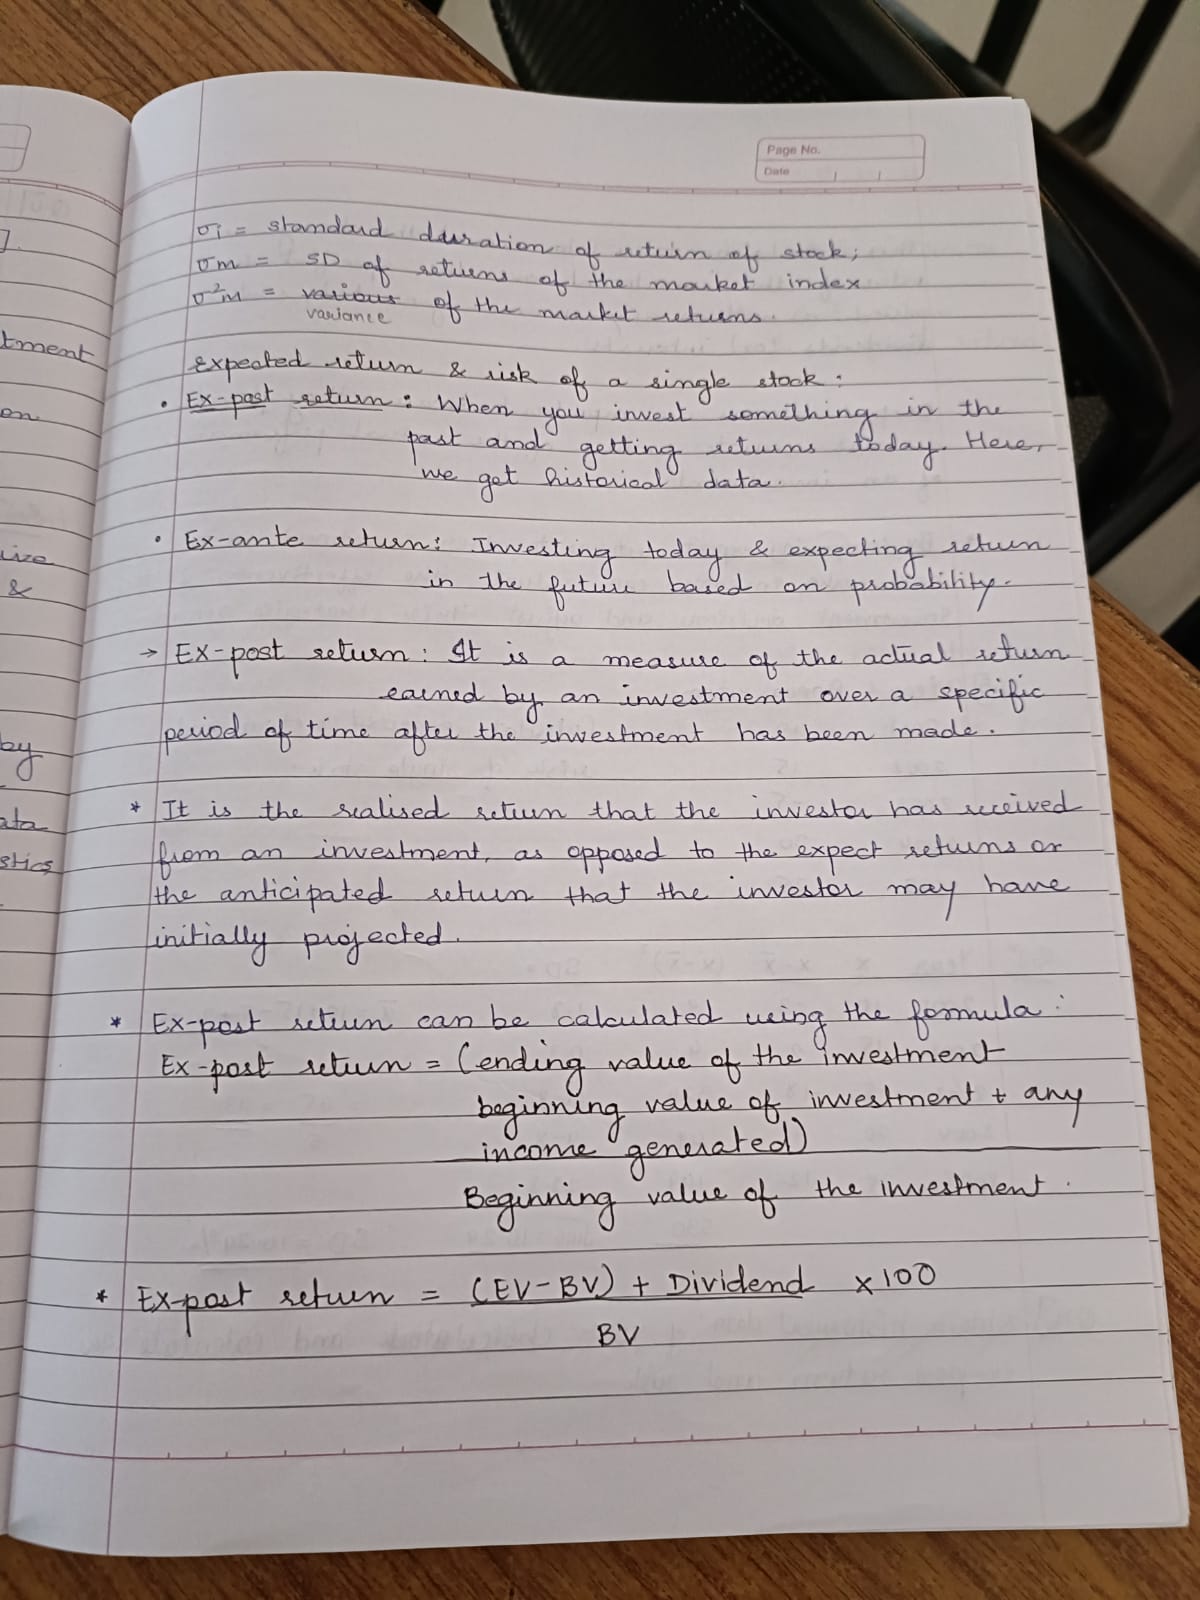 Page No.
Date
σi = standard duration of return of stock;
σm = SD of returns of the market index
σ²m = various of the market returns.
variance
Expected return & risk of a single stock:
• Ex-post return: When you invest something in the
past and getting returns today. Here,
we get historical data.
• Ex-ante return: Investing today & expecting return
in the future based on probability.
→ Ex-post return: It is a measure of the actual return
earned by an investment over a specific
period of time after the investment has been made.
* It is the realised return that the investor has received
from an investment, as opposed to the expect returns or
the anticipated return that the investor may have
initially projected.
* Ex-post return can be calculated using the formula:
Ex-post return = (ending value of the investment -
beginning value of investment + any
income generated)
Beginning value of the investment.
* Ex-post return = (EV-BV) + Dividend x100
BV
].
tment
on
ize
&
by
ata
stics